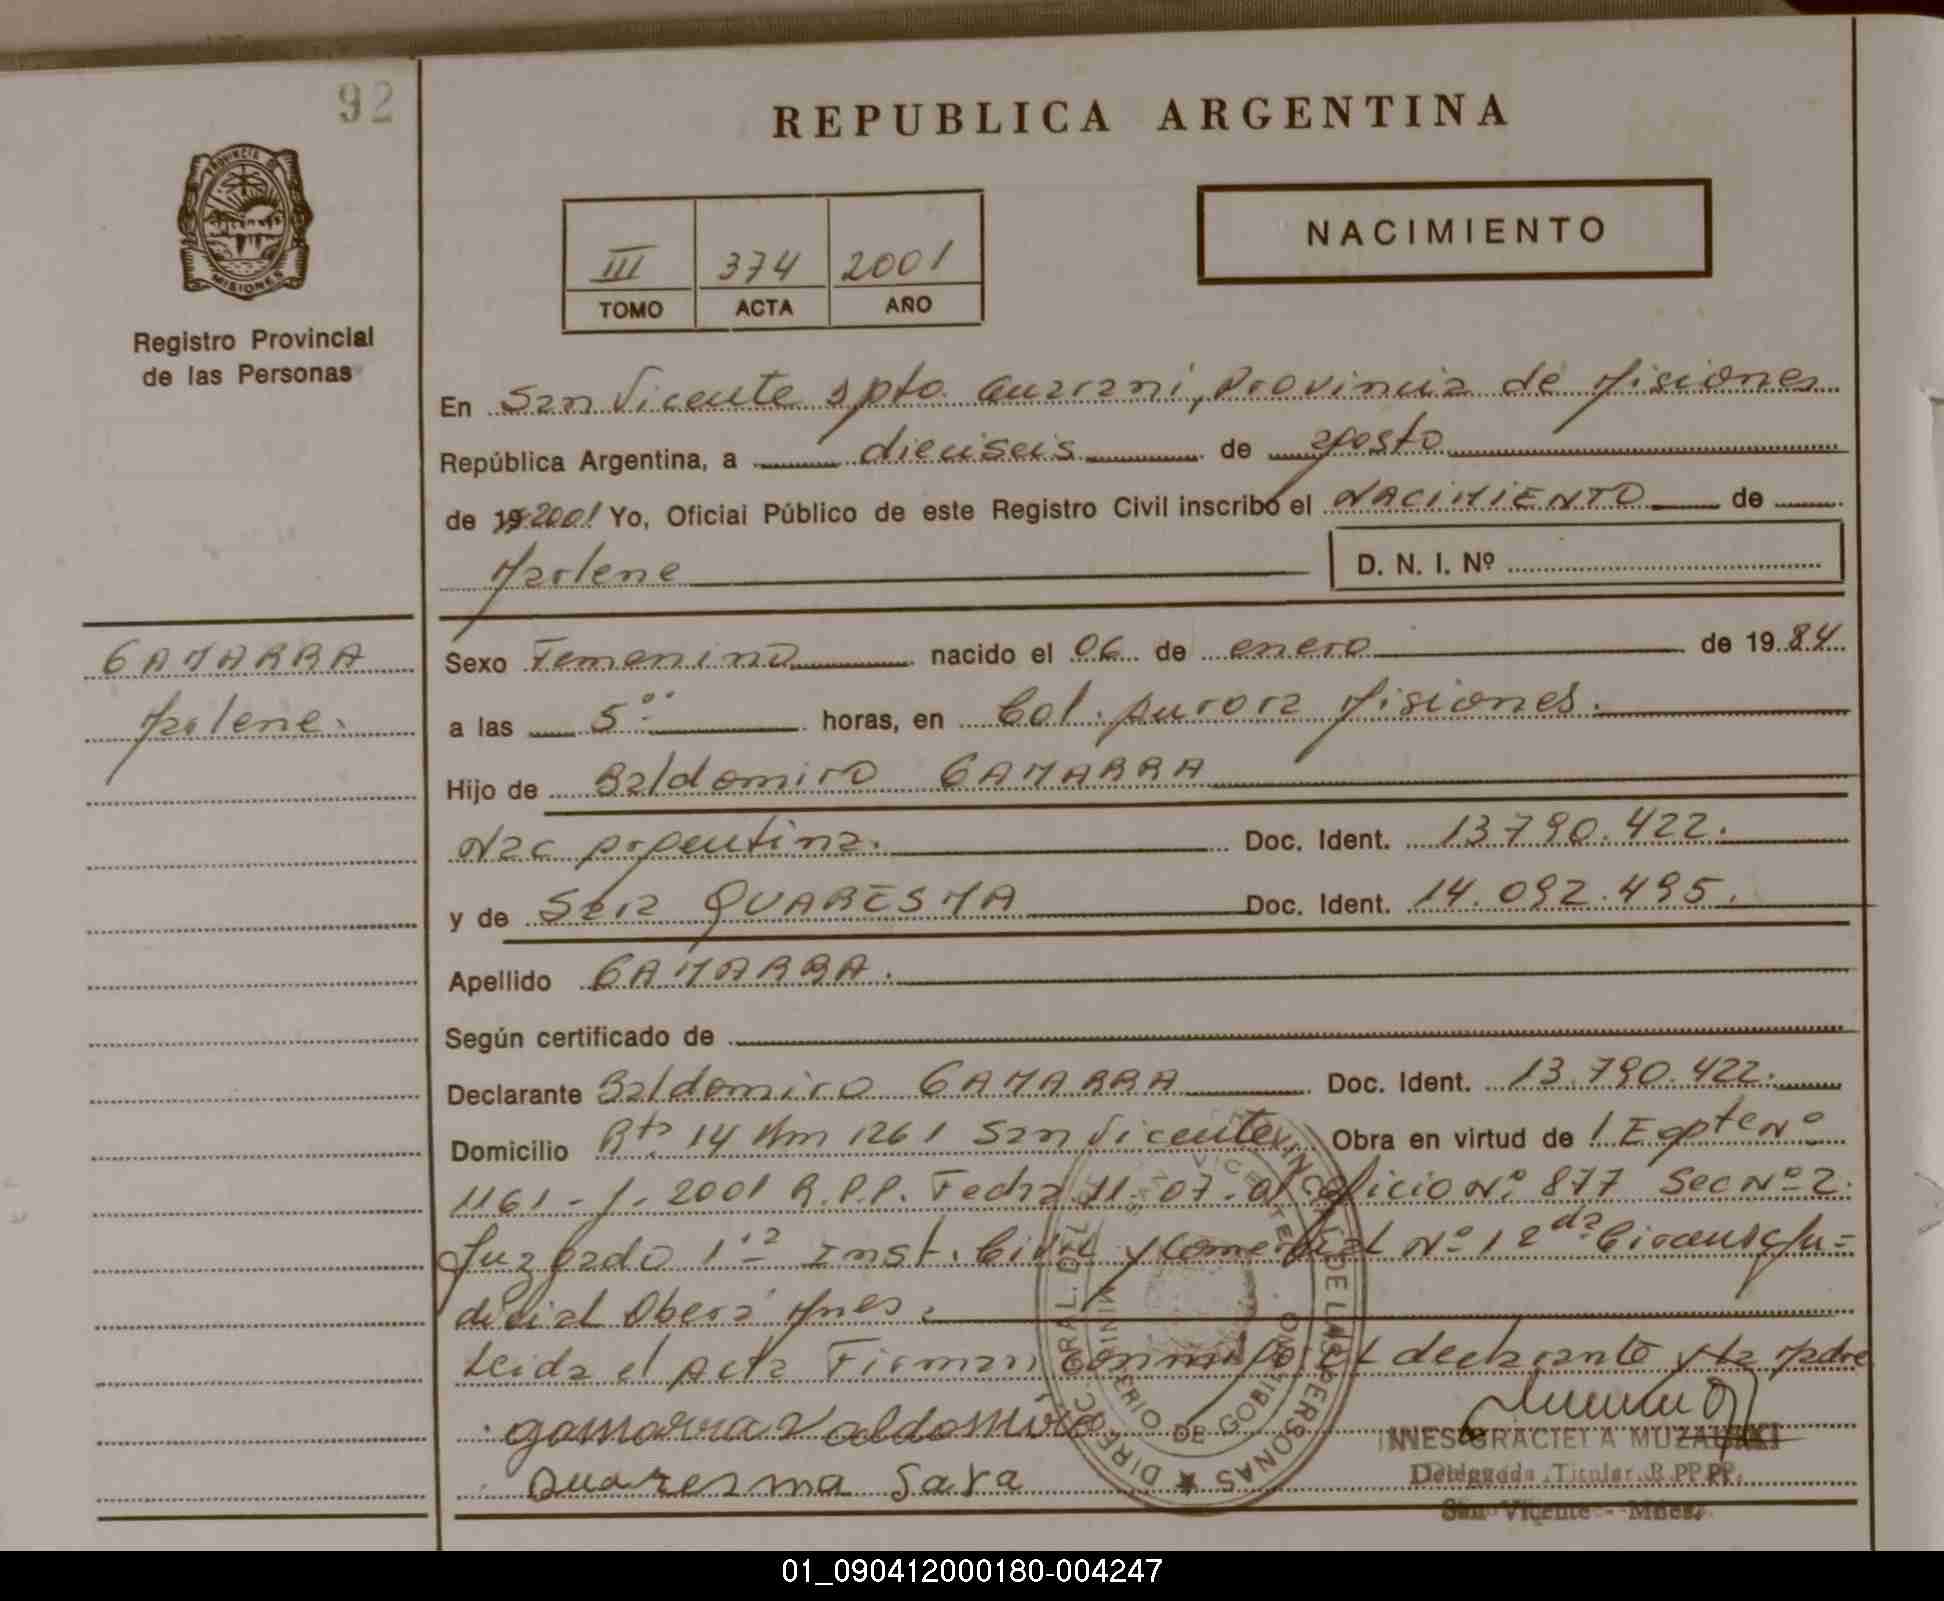 92
REPUBLICA ARGENTINA
PROVINCIA DE MISIONES
Registro Provincial
de las Personas
III 374 2001
TOMO ACTA AÑO
NACIMIENTO
En San Vicente Dpto. Guarani, Provincia de Misiones
República Argentina, a dieciseis de Agosto
de 19 2001 Yo, Oficial Público de este Registro Civil inscribo el NACIMIENTO de
Marlene
D. N. I. Nº
GAMARRA
Marlene.
Sexo Femenino nacido el 06 de enero de 1984
a las 5 horas, en Col. Aurora Misiones.
Hijo de Baldomiro GAMARRA
Nac Argentina. Doc. Ident. 13.790.422.
y de Sara QUARESMA Doc. Ident. 14.092.495.
Apellido GAMARRA.
Según certificado de
Declarante Baldomiro GAMARRA Doc. Ident. 13.790.422.
Domicilio Rta 14 Km 1261 San Vicente. Obra en virtud de Expte Nº
1161-J-2001 R.P.P. Fecha 11-07-01 Oficio Nº 877 Sec Nº 2.
Juzgado 1ra Inst. Civil y Comercial Nº 1 2da Circunsc Ju=
dicial Oberá Mnes.
Leida el Acta Firman conmigo el declarante y la Madre
gamarra Valdomiro
Quaresma Sara
DIRECC. GRAL. DEL PROVINCIAL DE LAS PERSONAS
MINISTERIO DE GOBIERNO
SAN VICENTE
INES GRACIELA MUZALSKI
Delegada Titular R.PP.PP.
San Vicente - Mnes.
01_090412000180-004247